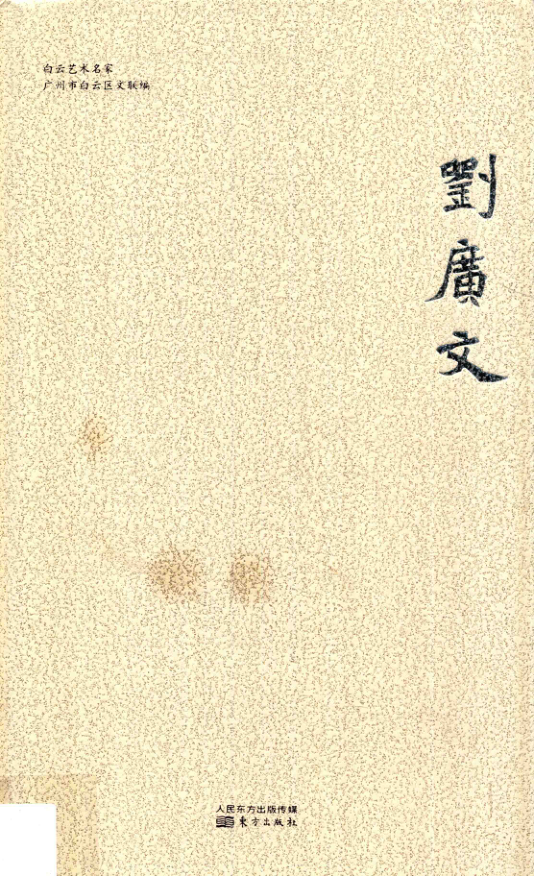 白云艺术名家
广州市白云区文联编
劉廣文
人民东方出版传媒
东方出版社